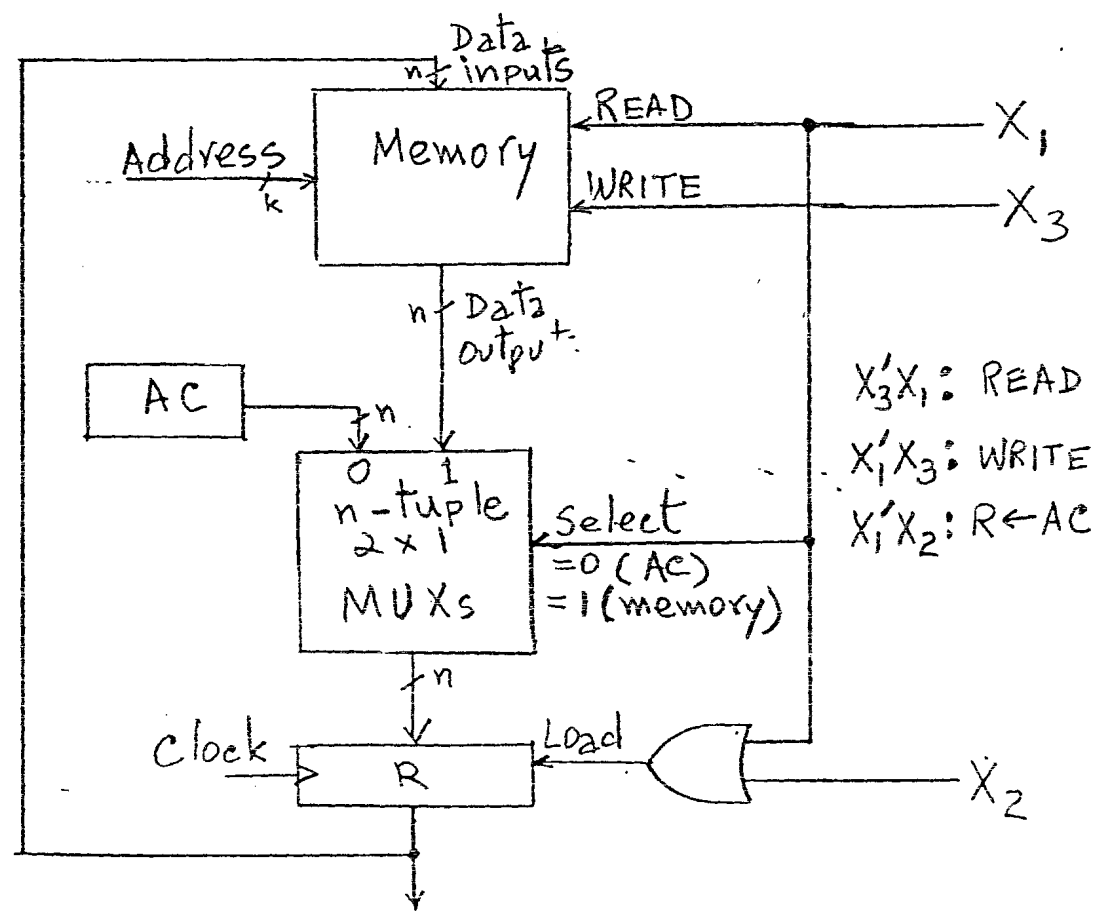 Data
n inputs
READ
X₁
Memory
Address
k
WRITE
X₃
n Data
output
AC
n
X₃'X₁: READ
X₁'X₃: WRITE
X₁'X₂: R←AC
0 1
n-tuple
2×1
MUXs
Select
=0 (AC)
=1 (memory)
n
Clock
R
Load
X₂